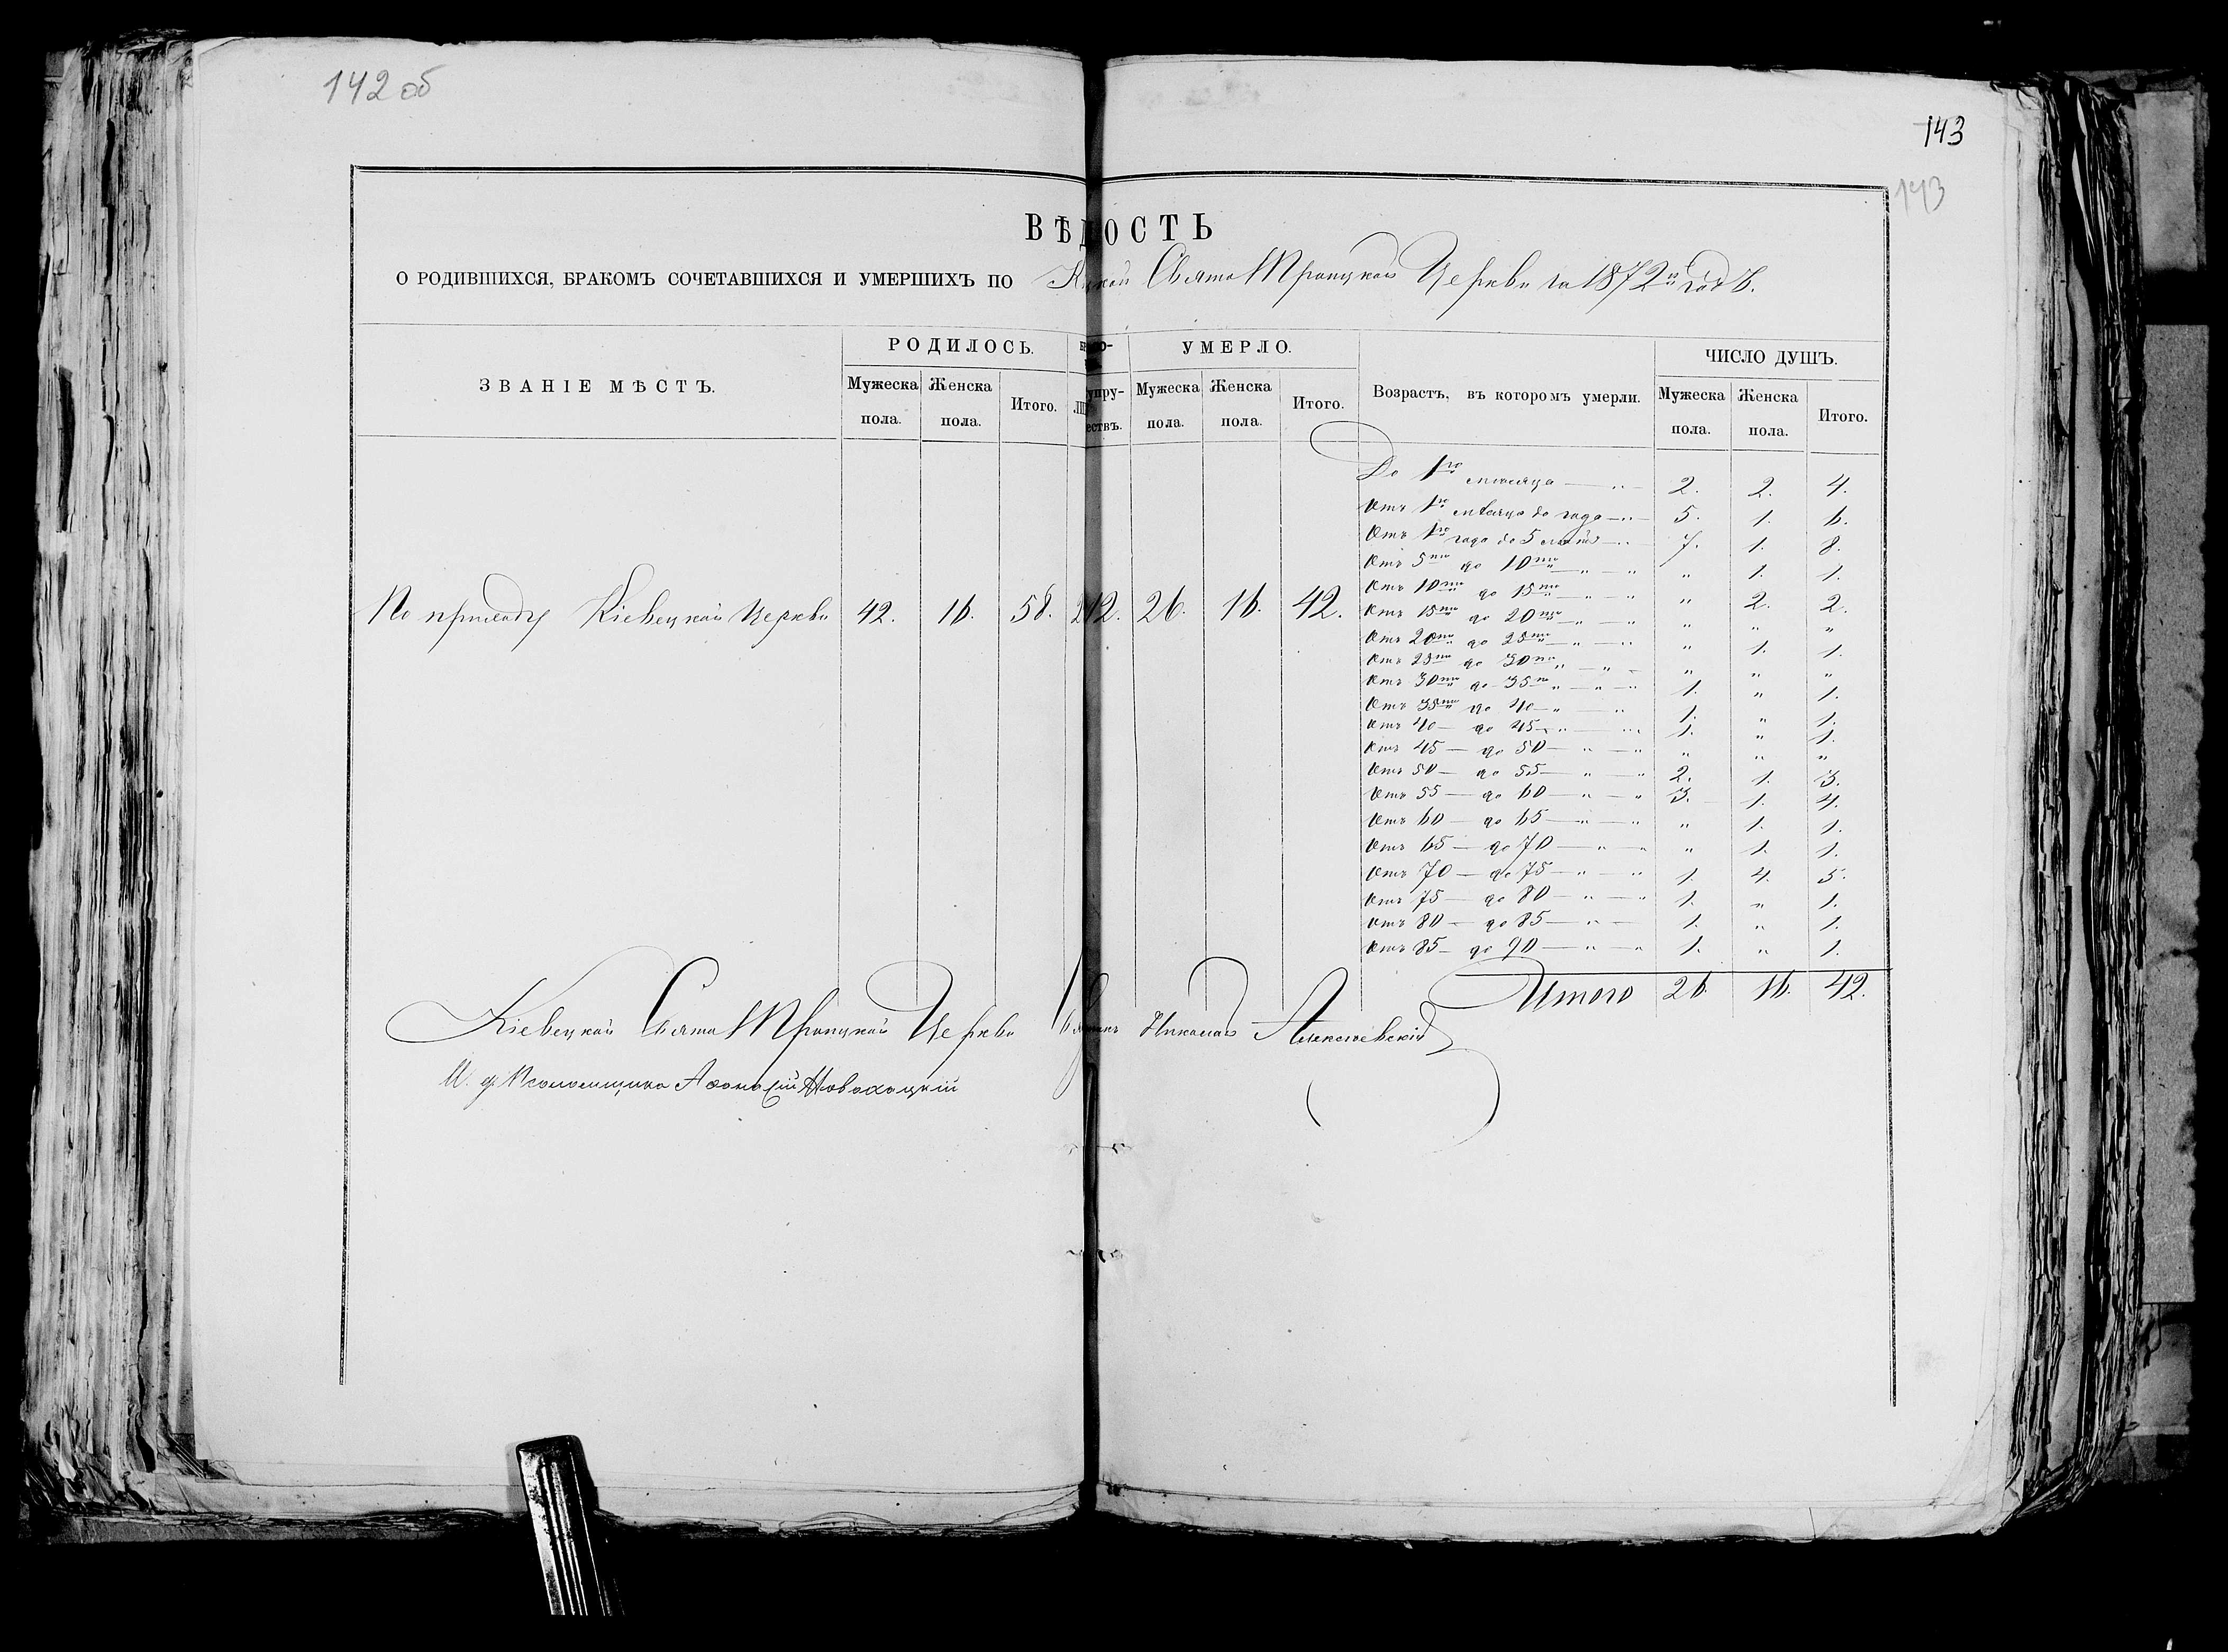 142 об
143
143
ВѢДОСТЬ
О РОДИВШИХСЯ, БРАКОМЪ СОЧЕТАВШИХСЯ И УМЕРШИХЪ ПО Свято Троицкой Церкви за 1872й годъ.
ЗВАНІЕ МѢСТЪ. РОДИЛОСЬ. УМЕРЛО. Возрастъ, въ которомъ умерли. ЧИСЛО ДУШЪ.
Мужеска пола. Женска пола. Итого. Мужеска пола. Женска пола. Итого. Мужеска пола. Женска пола. Итого.
До 1го мѣсяца — „ — 2. 2. 4.
Отъ 1го мѣсяца до года — „ — 5. 1. 6.
Отъ 1го года до 5 лѣтъ — „ 7. 1. 8.
Отъ 5ти до 10ти — „ — „ „ 1. 1.
Отъ 10ти до 15ти — „ — „ „ 2. 2.
По приходу Кіевецкой Церкви 42. 16. 58. 12. 26. 16. 42.
Отъ 15ти до 20ти — „ — „ „ „ „
Отъ 20ти до 25ти — „ — „ „ 1. 1.
Отъ 25ти до 30ти „ — „ — „ „ „
Отъ 30ти до 35ти „ — „ — „ 1. „ 1.
Отъ 35ти до 40 — „ — „ 1. „ 1.
Отъ 40 — до 45 — „ — „ 1. „ 1.
Отъ 45 — до 50 — „ — „ „ „ „
Отъ 50 — до 55 — „ — „ 2. 1. 3.
Отъ 55 — до 60 — „ — „ 3. 1. 4.
Отъ 60 — до 65 — „ — „ „ 1. 1.
Отъ 65 — до 70 — „ — „ „ 1. 1.
Отъ 70 — до 75 — „ — „ 1. 4. 5.
Отъ 75 — до 80 — „ — „ 1. „ 1.
Отъ 80 — до 85 — „ — 1. „ 1.
Отъ 85 — до 90 — „ — „ 1. „ 1.
Итого 26. 16. 42.
Кіевецкой Свято Троицкой Церкви Николай
И. д. Псаломщика Новохацкій